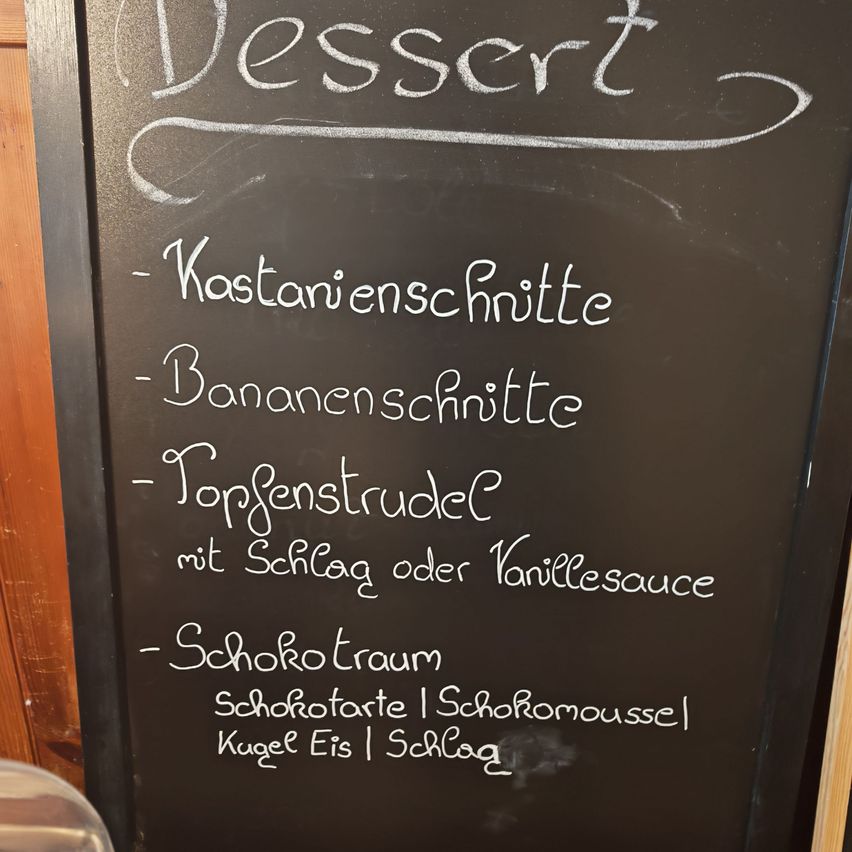 Dessert
- Kastanienschnitte
- Bananenschnitte
- Topfenstrudel
mit Schlag oder Vanillesauce
- Schokotraum
Schokotarte | Schokomousse |
Kugel Eis | Schlag